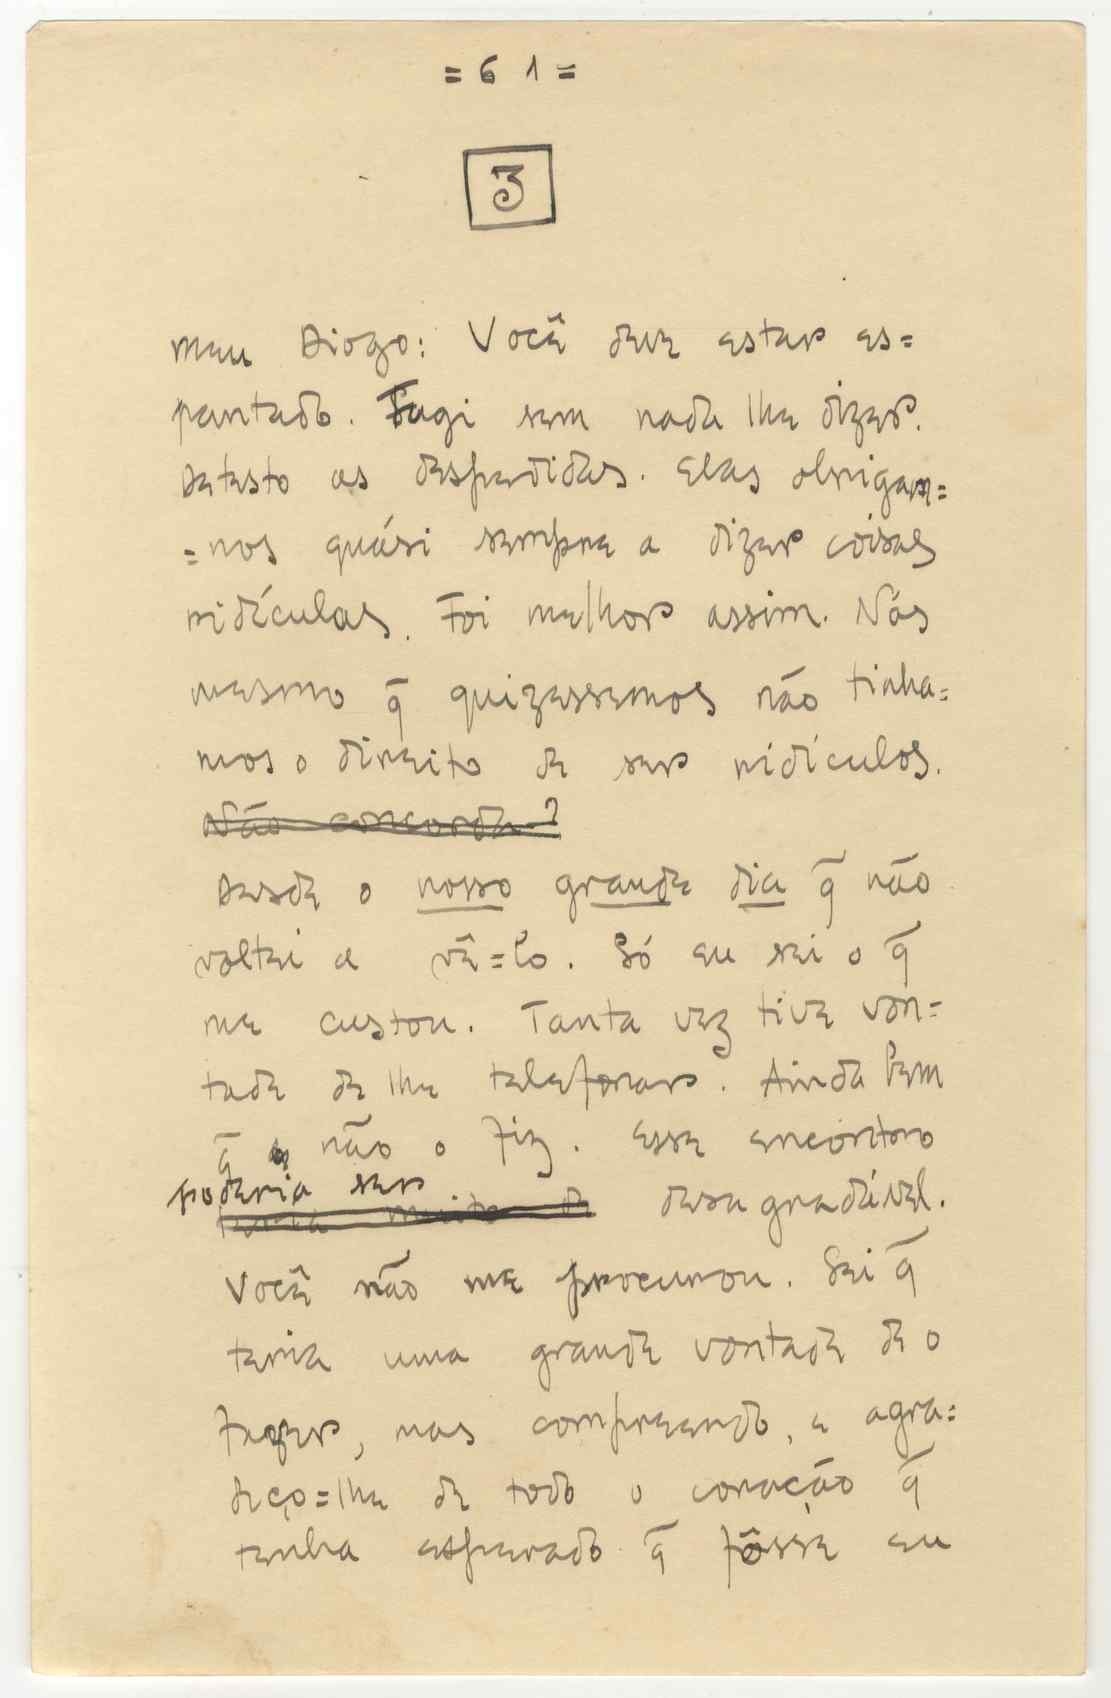 = 6 1 =
3
Meu Diogo: Você deve estar es=
pantado. Fugi sem nada lhe dizer.
Detesto as despedidas. Elas obrigam=
=nos quási sempre a dizer coisas
ridículas. Foi melhor assim. Nós
mesmo q̃ quizessemos não tinha=
mos o direito de ser ridículos.
Não concorda?
Desde o nosso grande dia q̃ não
voltei a vê=lo. Só eu sei o q̃
me custou. Tanta vez tive von=
tade de lhe telefonar. Ainda bem
q̃ não o fiz. Esse encontro
poderia ser
teria muito de desagradável.
Você não me procurou. Sei q̃
teria uma grande vontade de o
fazer, mas compreendo, e agra=
deço=lhe de todo o coração q̃
tenha esperado q̃ fôsse eu